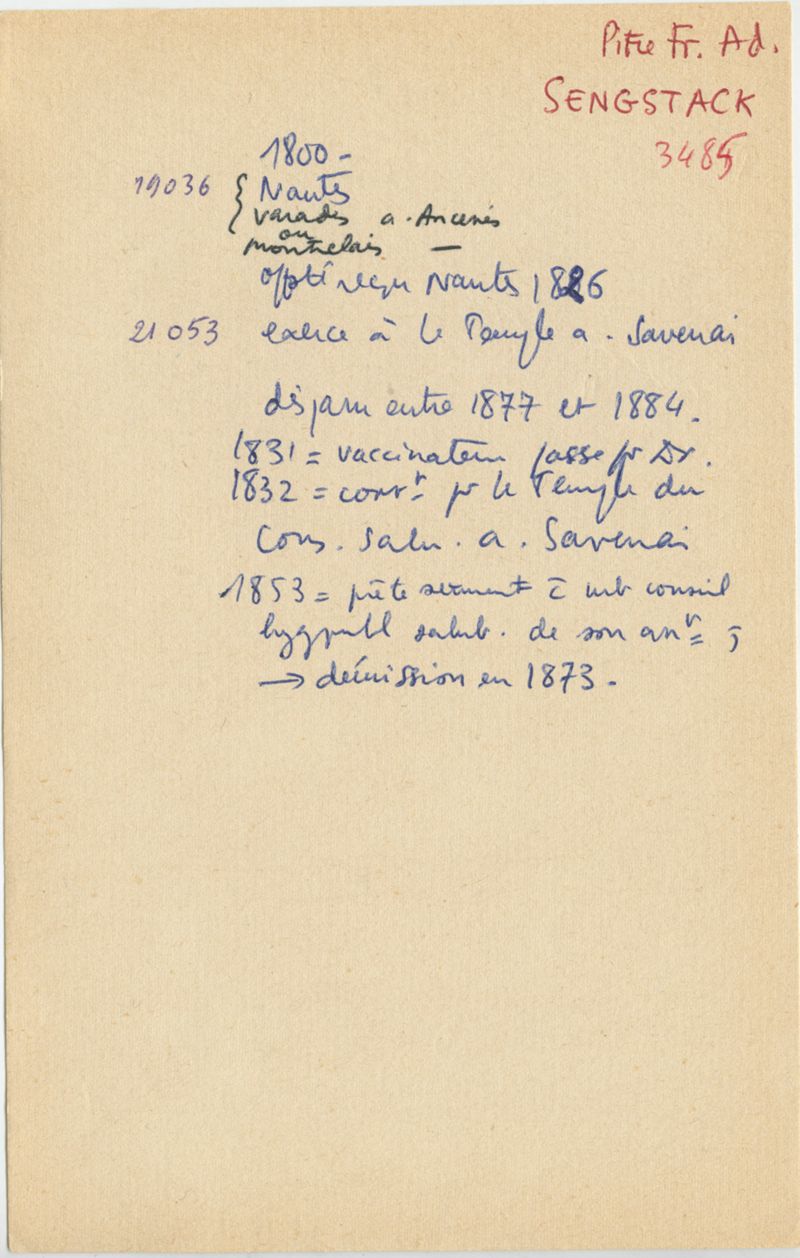 Pitre Fr. Ad.
SENGSTACK
3485
1800 -
19036 { Nantes
varades a. Ancenis
ou
montrelais —
reçu Nantes 1826
21053 exerce à le Temple a. Savenai
disparu entre 1877 et 1884.
1831 = vaccinateur passe pr Dr.
1832 = corr^r pr le Temple du
Cons. Salu. a. Savenai
1853 = prête serment c̄ mb conseil
hygpubl salub. de son arr^r ;
→ démission en 1873.